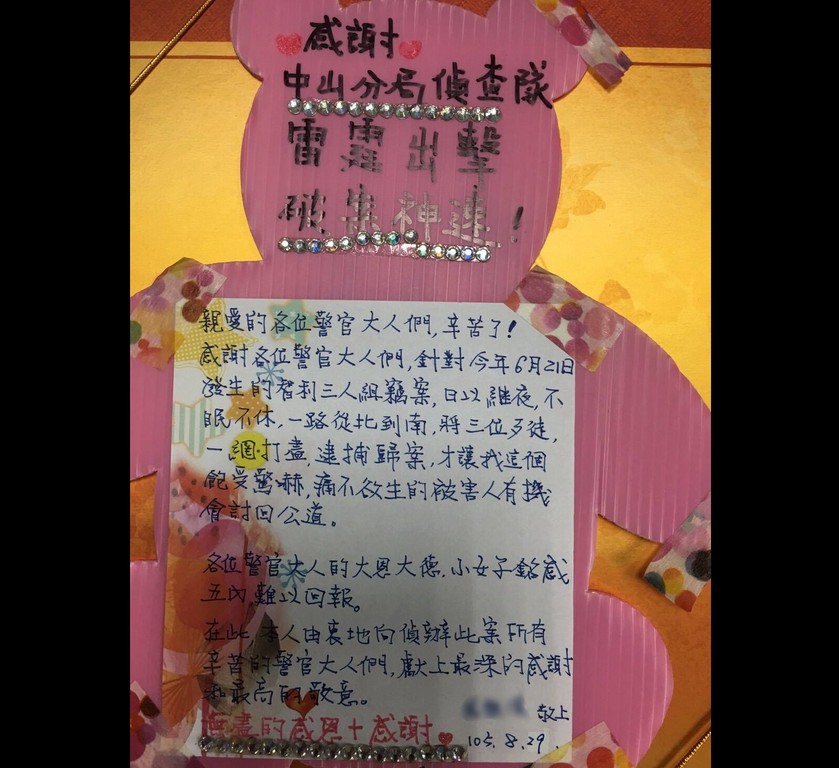 感謝
中山分局偵查隊
雷霆出擊
破案神速！
親愛的各位警官大人們，辛苦了！
感謝各位警官大人們，針對今年6月21日
發生的智利三人組竊案，日以繼夜，不
眠不休，一路從北到南，將三位歹徒，
一網打盡，逮捕歸案，才讓我這個
飽受驚嚇，痛不欲生的被害人有機
會討回公道。
各位警官大人的大恩大德，小女子銘感
五內，難以回報。
在此，本人由衷地向偵辦此案所有
辛苦的警官大人們，獻上最深的感謝
和最高的敬意。
無盡的感恩+感謝
敬上
105.8.29.